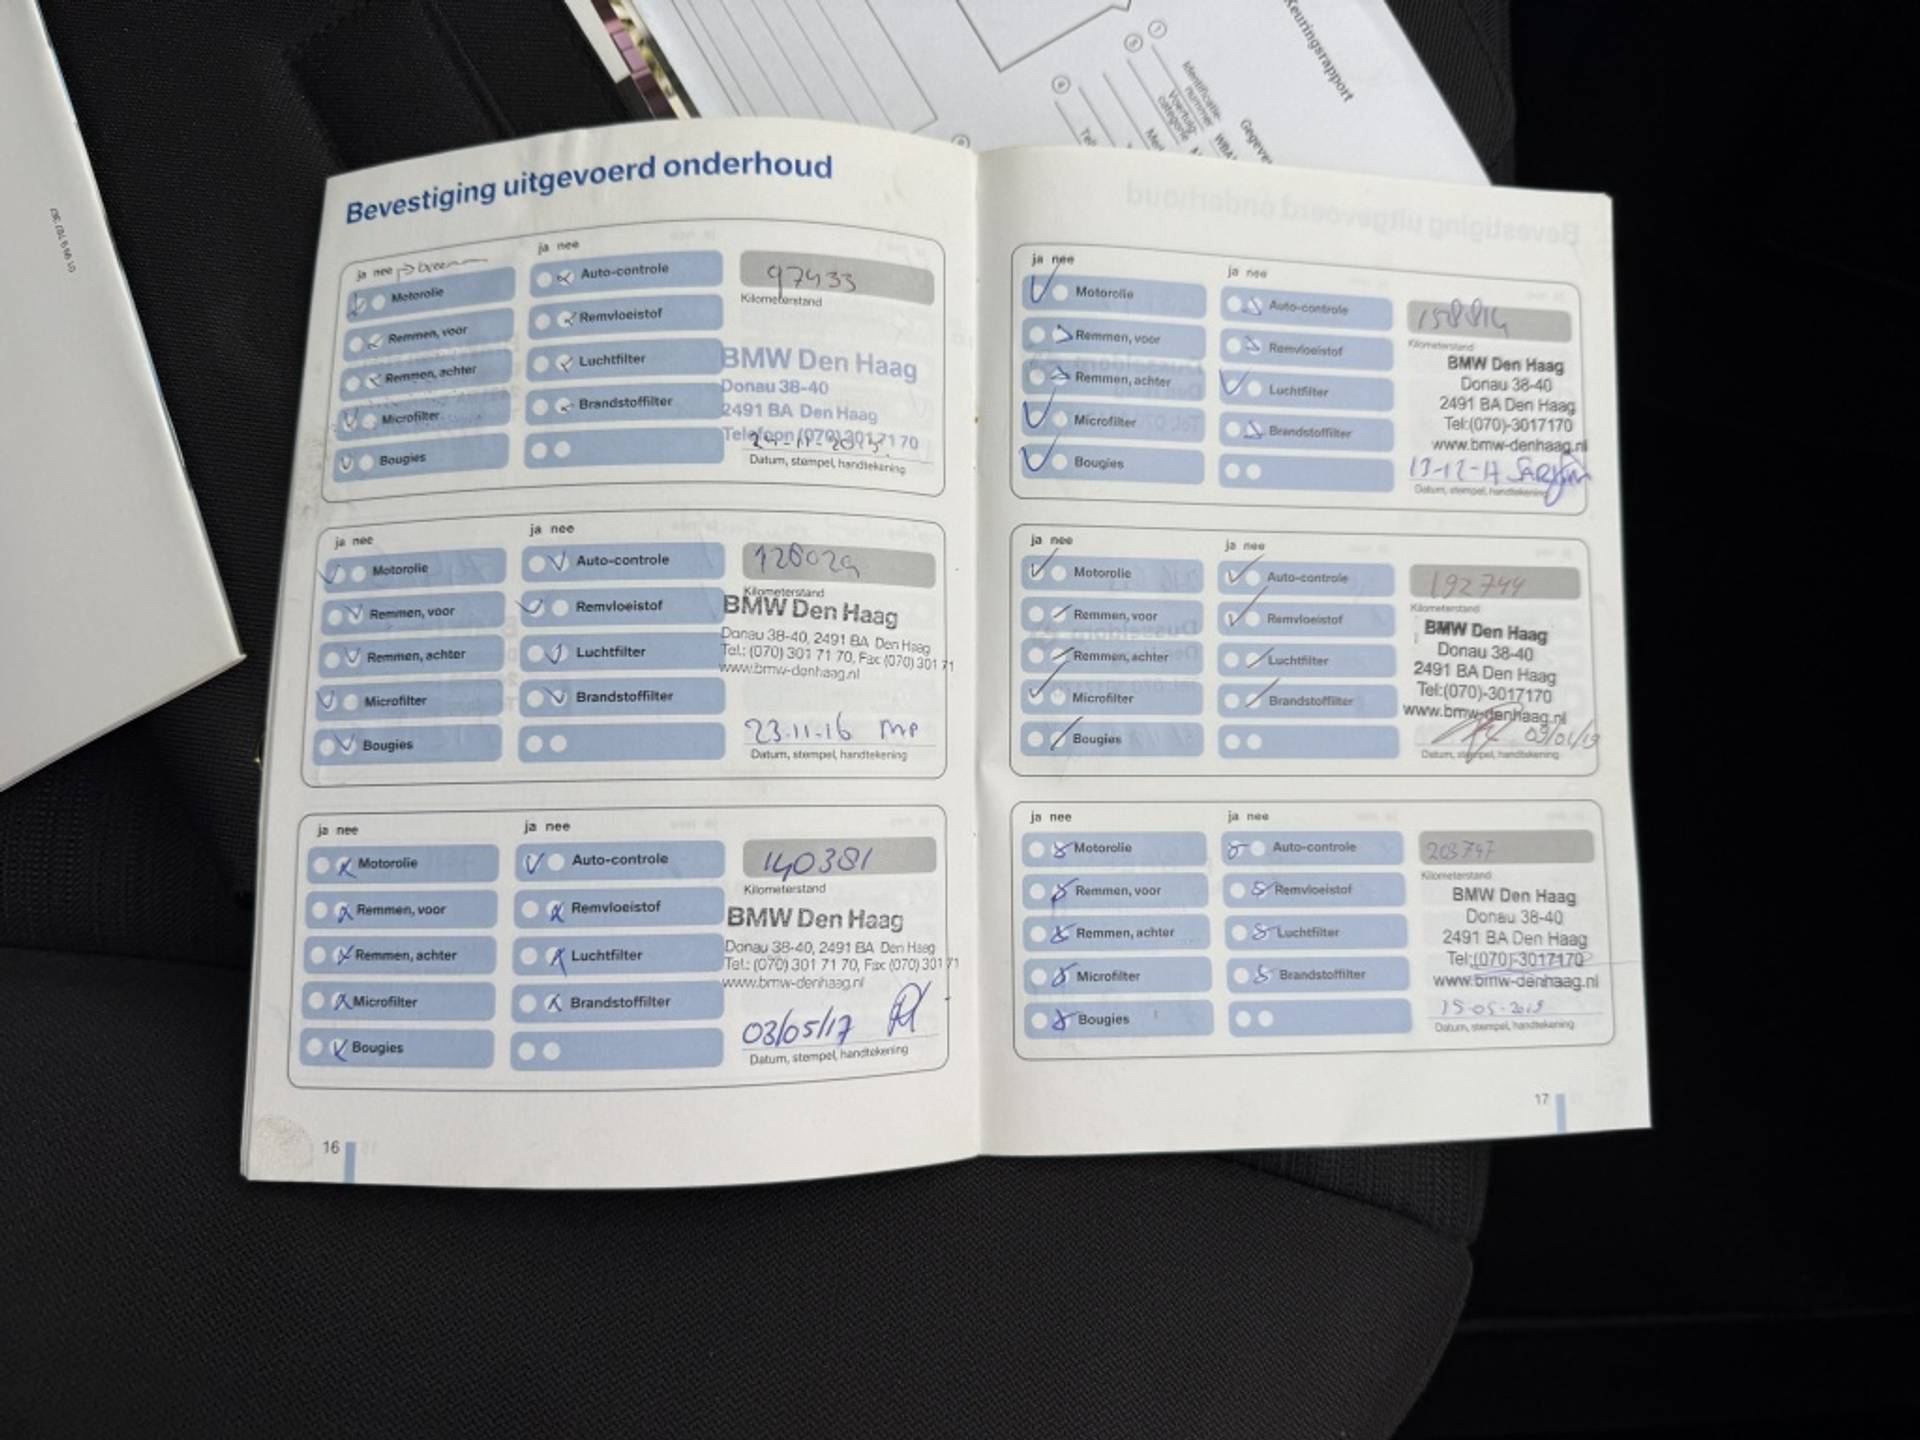 Keuringsrapport
Identificatie-
nummer
Voertuig-
categorie
01 99 9 787 367
Bevestiging uitgevoerd onderhoud
ja nee
ja nee
Motorolie
Auto-controle
97433
Remmen, voor
Remvloeistof
Kilometerstand
Remmen, achter
Luchtfilter
BMW Den Haag
Donau 38-40
Microfilter
Brandstoffilter
2491 BA Den Haag
Telefoon (070) 301 71 70
Bougies
Datum, stempel, handtekening
ja nee
ja nee
Motorolie
Auto-controle
126029
Remmen, voor
Remvloeistof
Kilometerstand
BMW Den Haag
Remmen, achter
Luchtfilter
Donau 38-40, 2491 BA Den Haag
Tel.: (070) 301 71 70, Fax: (070) 301 71
www.bmw-denhaag.nl
Microfilter
Brandstoffilter
Bougies
23-11-16 MP
Datum, stempel, handtekening
ja nee
ja nee
Motorolie
Auto-controle
140381
Remmen, voor
Remvloeistof
Kilometerstand
BMW Den Haag
Remmen, achter
Luchtfilter
Donau 38-40, 2491 BA Den Haag
Tel.: (070) 301 71 70, Fax: (070) 301 71
www.bmw-denhaag.nl
Microfilter
Brandstoffilter
Bougies
03/05/17
Datum, stempel, handtekening
16
ja nee
ja nee
Motorolie
Auto-controle
158814
Remmen, voor
Remvloeistof
Kilometerstand
BMW Den Haag
Remmen, achter
Luchtfilter
Donau 38-40
2491 BA Den Haag
Microfilter
Brandstoffilter
Tel:(070)-3017170
www.bmw-denhaag.nl
Bougies
13-12-17
Datum, stempel, handtekening
ja nee
ja nee
Motorolie
Auto-controle
192744
Remmen, voor
Remvloeistof
Kilometerstand
BMW Den Haag
Remmen, achter
Luchtfilter
Donau 38-40
2491 BA Den Haag
Microfilter
Brandstoffilter
Tel:(070)-3017170
www.bmw-denhaag.nl
Bougies
09/01/19
Datum, stempel, handtekening
ja nee
ja nee
Motorolie
Auto-controle
203747
Remmen, voor
Remvloeistof
Kilometerstand
BMW Den Haag
Remmen, achter
Luchtfilter
Donau 38-40
2491 BA Den Haag
Microfilter
Brandstoffilter
Tel:(070)-3017170
www.bmw-denhaag.nl
Bougies
Datum, stempel, handtekening
17